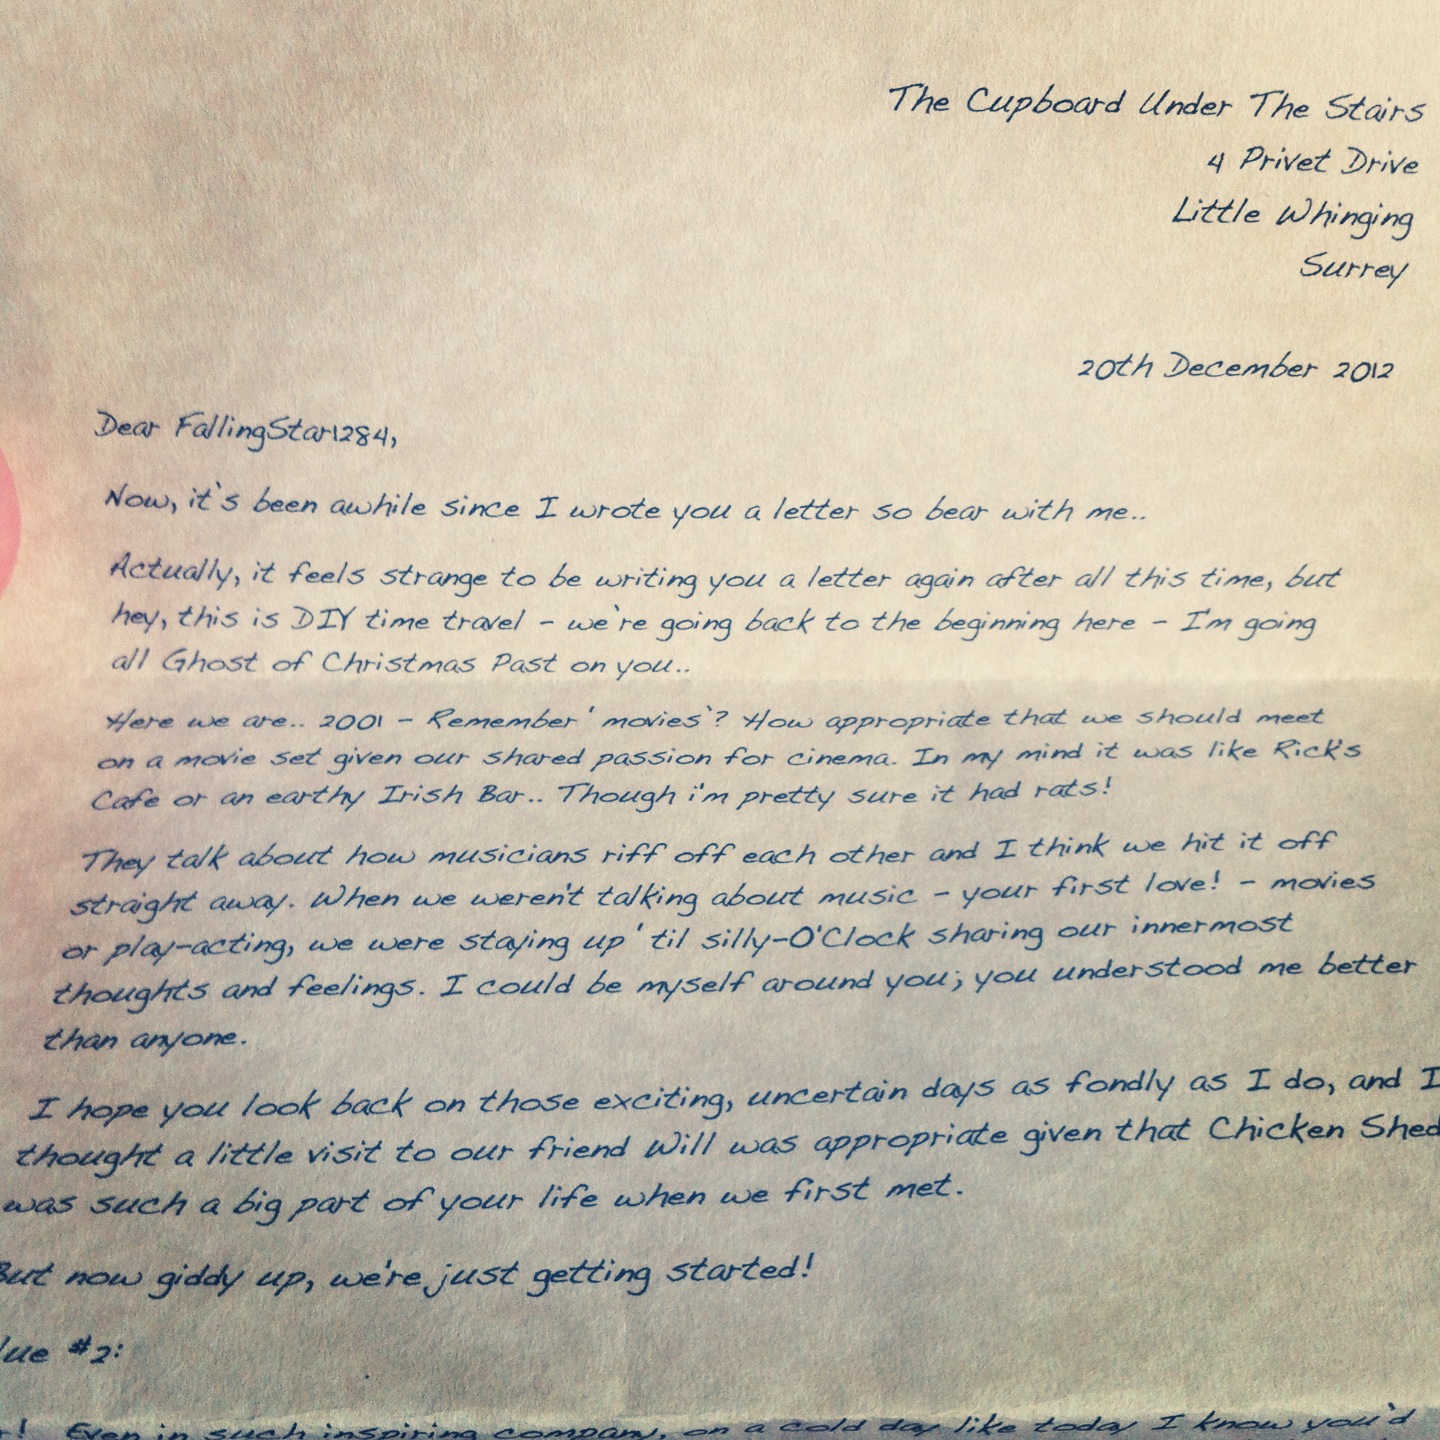 The Cupboard Under The Stairs
4 Privet Drive
Little Whinging
Surrey
20th December 2012
Dear FallingStar1284,
Now, it's been awhile since I wrote you a letter so bear with me..
Actually, it feels strange to be writing you a letter again after all this time, but
hey, this is DIY time travel - we're going back to the beginning here - I'm going
all Ghost of Christmas Past on you..
Here we are.. 2001 - Remember 'movies'? How appropriate that we should meet
on a movie set given our shared passion for cinema. In my mind it was like Rick's
Cafe or an earthy Irish Bar.. Though i'm pretty sure it had rats!
They talk about how musicians riff off each other and I think we hit it off
straight away. When we weren't talking about music - your first love! - movies
or play-acting, we were staying up 'til silly-O'Clock sharing our innermost
thoughts and feelings. I could be myself around you; you understood me better
than anyone.
I hope you look back on those exciting, uncertain days as fondly as I do, and I
thought a little visit to our friend Will was appropriate given that Chicken Shed
was such a big part of your life when we first met.
But now giddy up, we're just getting started!
lue #2:
r! Even in such inspiring company, on a cold day like today I know you'd